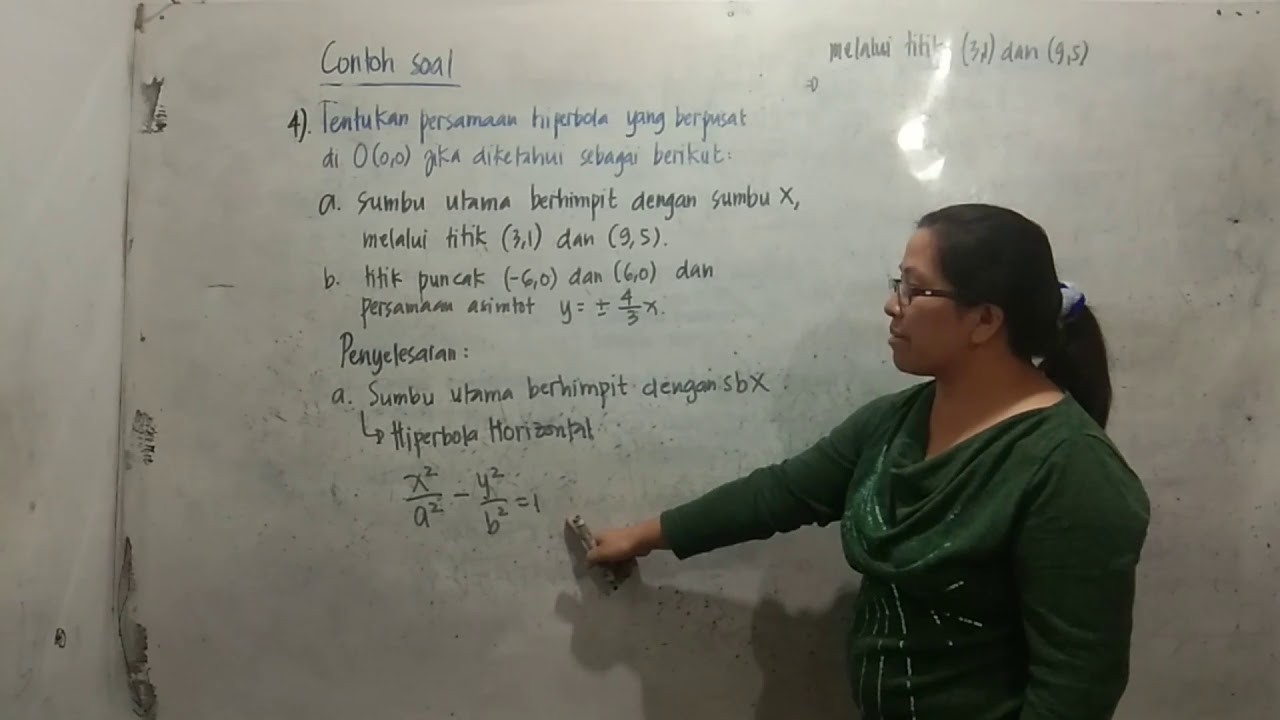 Contoh soal
4). Tentukan persamaan hiperbola yang berpusat
di O(0,0) jika diketahui sebagai berikut:
a. sumbu utama berhimpit dengan sumbu X,
melalui titik (3,1) dan (9,5).
b. titik puncak (-6,0) dan (6,0) dan
persamaan asimtot y = ± 4/3 x.
Penyelesaian:
a. Sumbu utama berhimpit dengan sb X
↳ Hiperbola Horizontal
x²/a² - y²/b² = 1
melalui titik (3,1) dan (9,5)